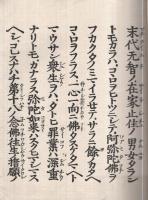 末代無智ノ在家止住ノ男女タラン
トモカラハコヽロヲヒトツニシテ阿弥陀佛ヲ
フカクタノミマイラセテサラニ餘ノカタヘ
コヽロヲフラス一心一向ニ佛タスケタマヘ
トマウサン衆生ヲハタトヒ罪業ハ深重
ナリトモカナラス弥陀如来ハスクヒマシマス
ヘシコレスナハチ第十八ノ念佛往生ノ誓願